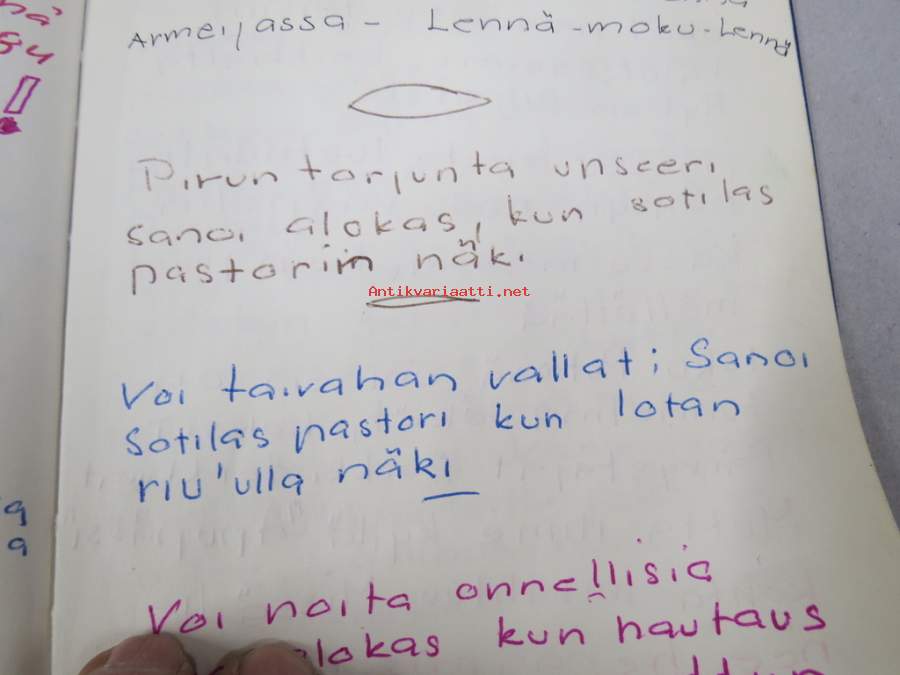 Armeijassa - Lennä-moku-Lennä
Pirun torjunta unsceri
sanoi alokas, kun sotilas
pastorin näki
Antikvariaatti.net
Voi taivahan vallat; Sanoi
Sotilas pastori kun lotan
riu'ulla näki
Voi noita onnellisia
alokas kun hautaus